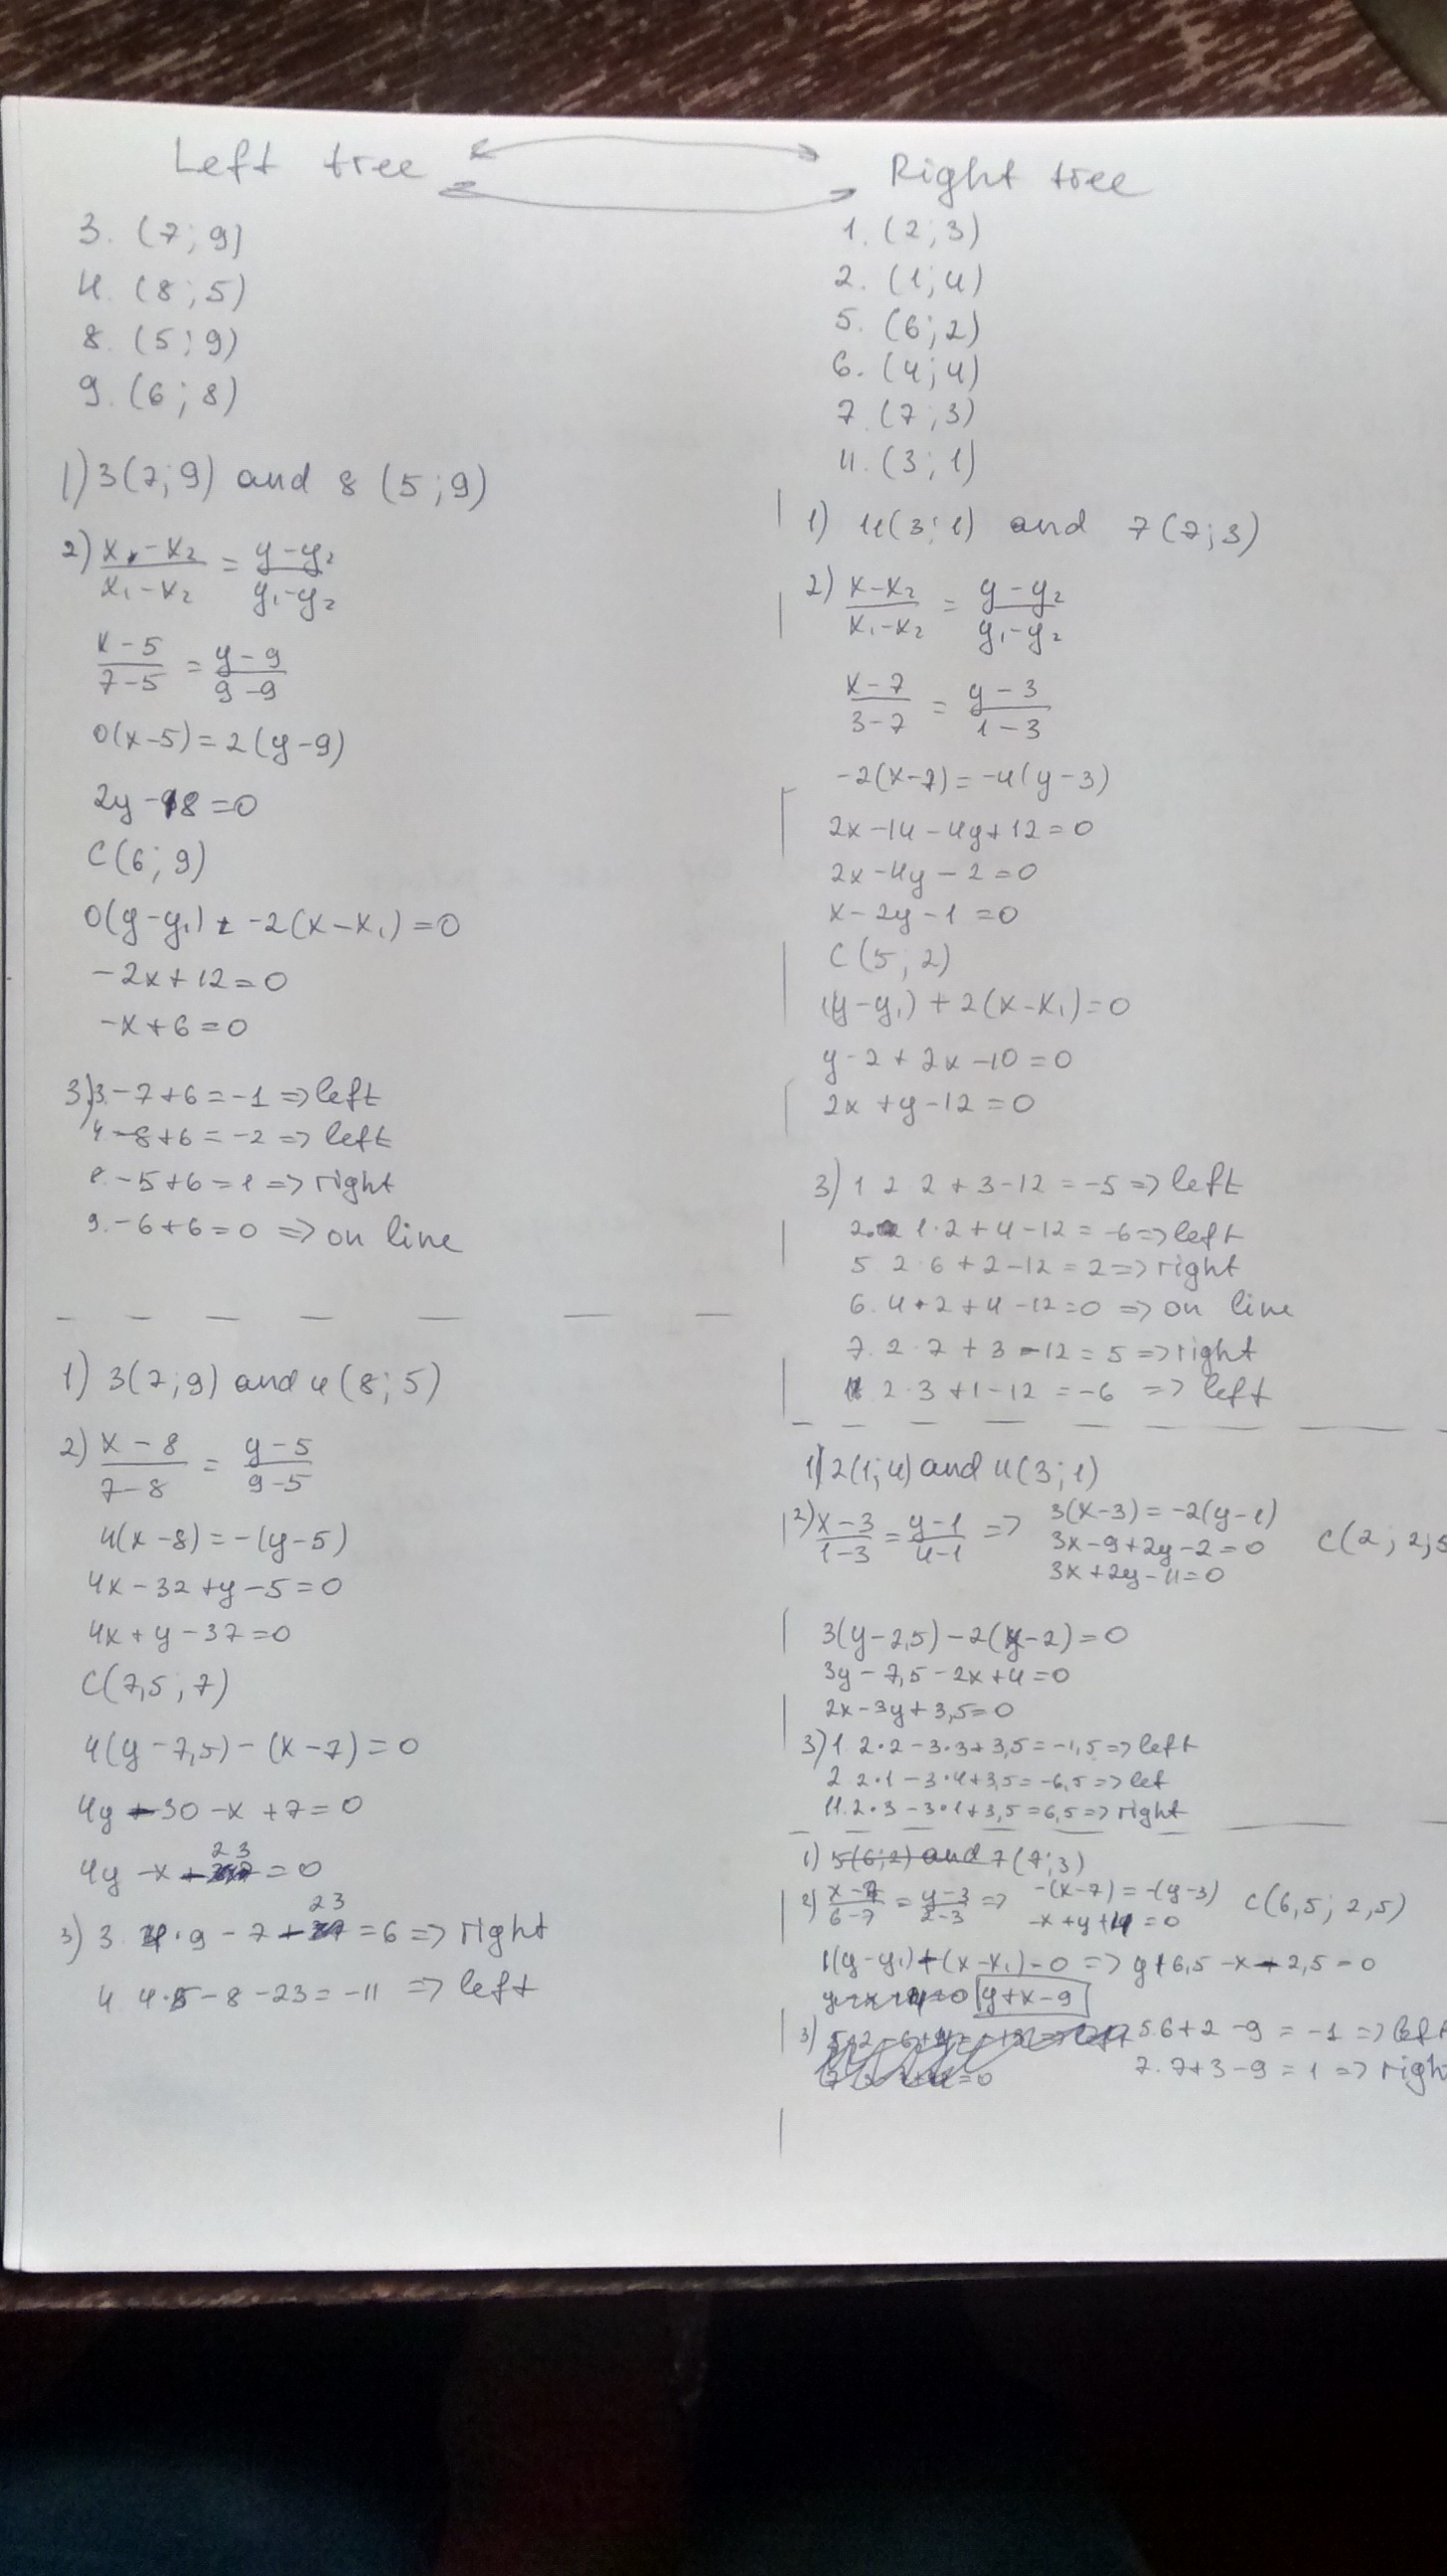 Left tree
3. (7; 9)
4. (8; 5)
8. (5; 9)
9. (6; 8)
1) 3(7; 9) and 8 (5; 9)
2) x-x₂/x₁-x₂ = y-y₂/y₁-y₂
x-5/7-5 = y-9/9-9
0(x-5)=2(y-9)
2y-18=0
C(6; 9)
0(y-y₁) + -2(x-x₁)=0
-2x+12=0
-x+6=0
3) 3.-7+6=-1=>left
4-8+6=-2=>left
8.-5+6=1=>right
9.-6+6=0 =>on line
1) 3(7;9) and 4(8;5)
2) x-8/7-8 = y-5/9-5
4(x-8)=-(y-5)
4x-32+y-5=0
4x+y-37=0
C(7,5; 7)
4(y-7,5)-(x-7)=0
4y-30-x+7=0
4y-x-23=0
3) 3. 4·9-7-23=6=>right
4 4·5-8-23=-11 =>left
Right tree
1. (2; 3)
2. (1; 4)
5. (6; 2)
6. (4; 4)
7. (7; 3)
11. (3; 1)
1) 11(3; 1) and 7(7; 3)
2) x-x₂/x₁-x₂ = y-y₂/y₁-y₂
x-7/3-7 = y-3/1-3
-2(x-7)=-4(y-3)
2x-14-4y+12=0
2x-4y-2=0
x-2y-1=0
C(5; 2)
1(y-y₁)+2(x-x₁)=0
y-2+2x-10=0
2x+y-12=0
3) 1 2 2+3-12=-5=>left
2. 1·2+4-12=-6=>left
5 2 6+2-12=2=>right
6. 4·2+4-12=0 =>on line
7. 2·7+3-12=5=>right
11 2·3+1-12=-6 =>left
1) 2(1;4) and 11(3;1)
2) x-3/1-3 = y-1/4-1 => 3(x-3)=-2(y-1)
3x-9+2y-2=0 C(2; 2,5
3x+2y-11=0
3(y-2,5)-2(x-2)=0
3y-7,5-2x+4=0
2x-3y+3,5=0
3) 1. 2·2-3·3+3,5=-1,5=>left
2 2·1-3·4+3,5=-6,5=>let
11. 2·3-3·1+3,5=6,5=>right
1) 5(6;2) and 7(7;3)
2) x-7/6-7 = y-3/2-3 => -(x-7)=-(y-3) C(6,5; 2,5)
-x+y+4=0
1(y-y₁)+(x-x₁)=0 => y+6,5-x-2,5=0
y+x-9
3) 5.6+2-9=-1=>left
7.7+3-9=1=>righ